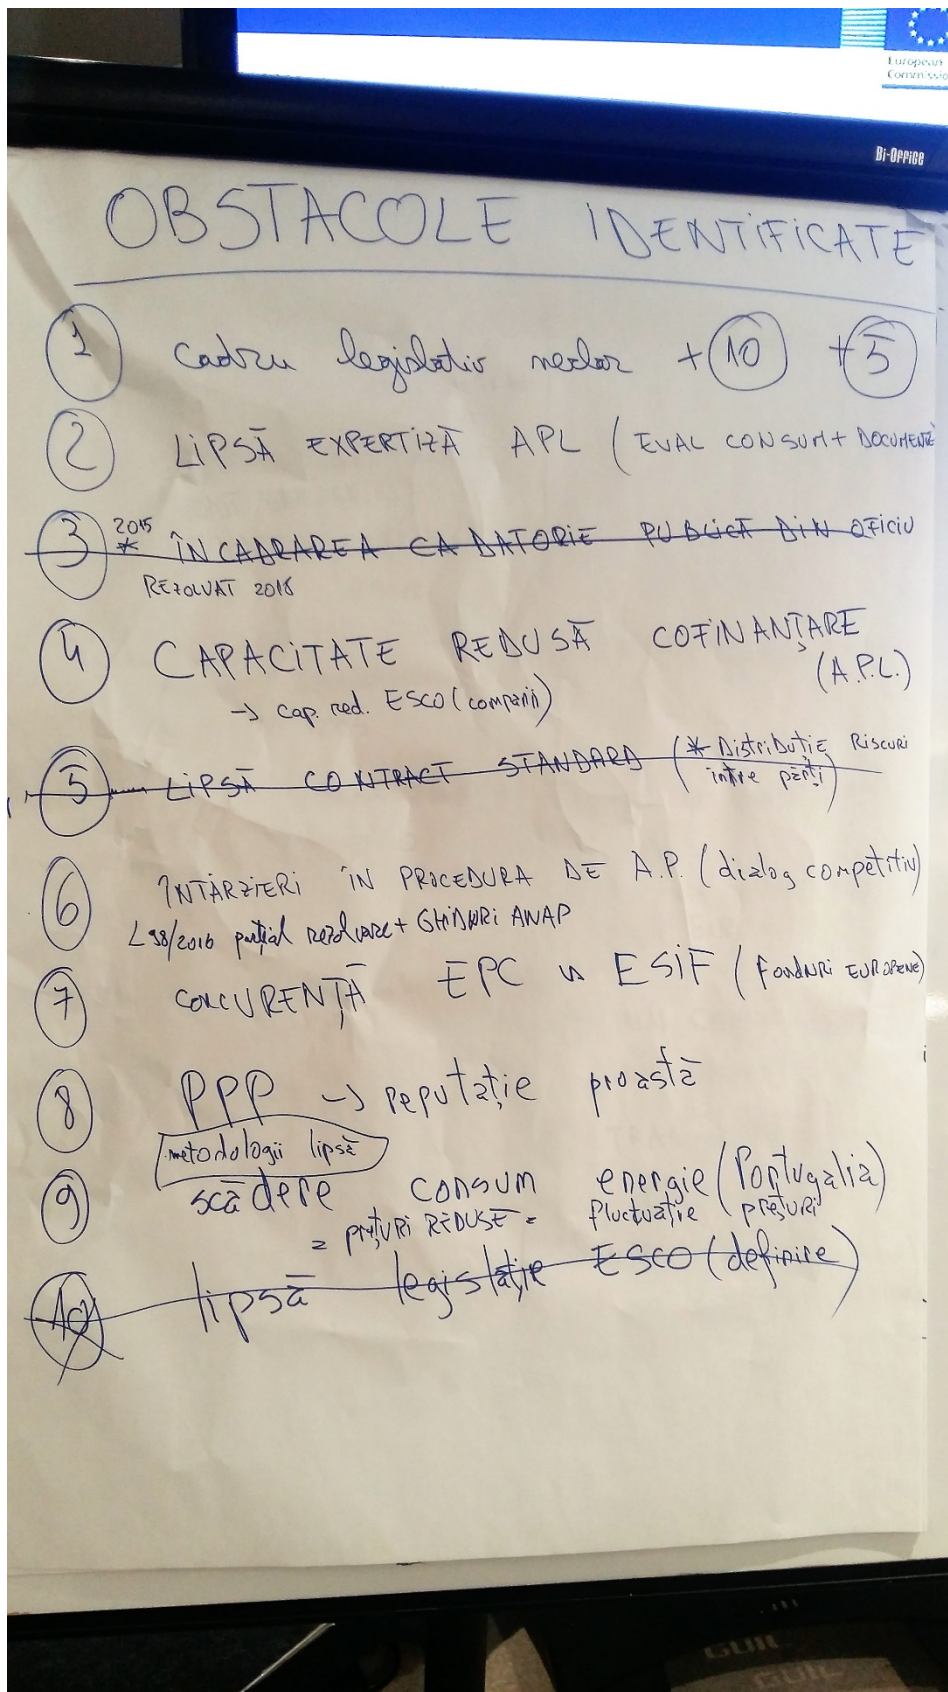 European
Commission
Bi-Office
OBSTACOLE IDENTIFICATE
1 cadru legislativ neclar + 10 + 5
2 LIPSĂ EXPERTIZĂ APL (EVAL CONSUM + DOCUMENTE
3 2015 * ÎNCADRAREA CA DATORIE PUBLICĂ DIN OFICIU
REZOLVAT 2016
4 CAPACITATE REDUSĂ COFINANȚARE
(A.P.L.)
→ cap. red. ESCO (companii)
5 LIPSĂ CONTRACT STANDARD (* Distribuție Riscuri
între părți)
6 ÎNTÂRZIERI ÎN PROCEDURA DE A.P. (dialog competitiv)
L98/2016 parțial rezolvare + GHIDURI ANAP
7 CONCURENȚĂ EPC vs ESIF (FONDURI EUROPENE)
8 PPP → reputație proastă
metodologii lipsă
9 scădere consum energie (Portugalia)
= prețuri REDUSE = fluctuație prețuri
10 lipsă legislație ESCO (definire)